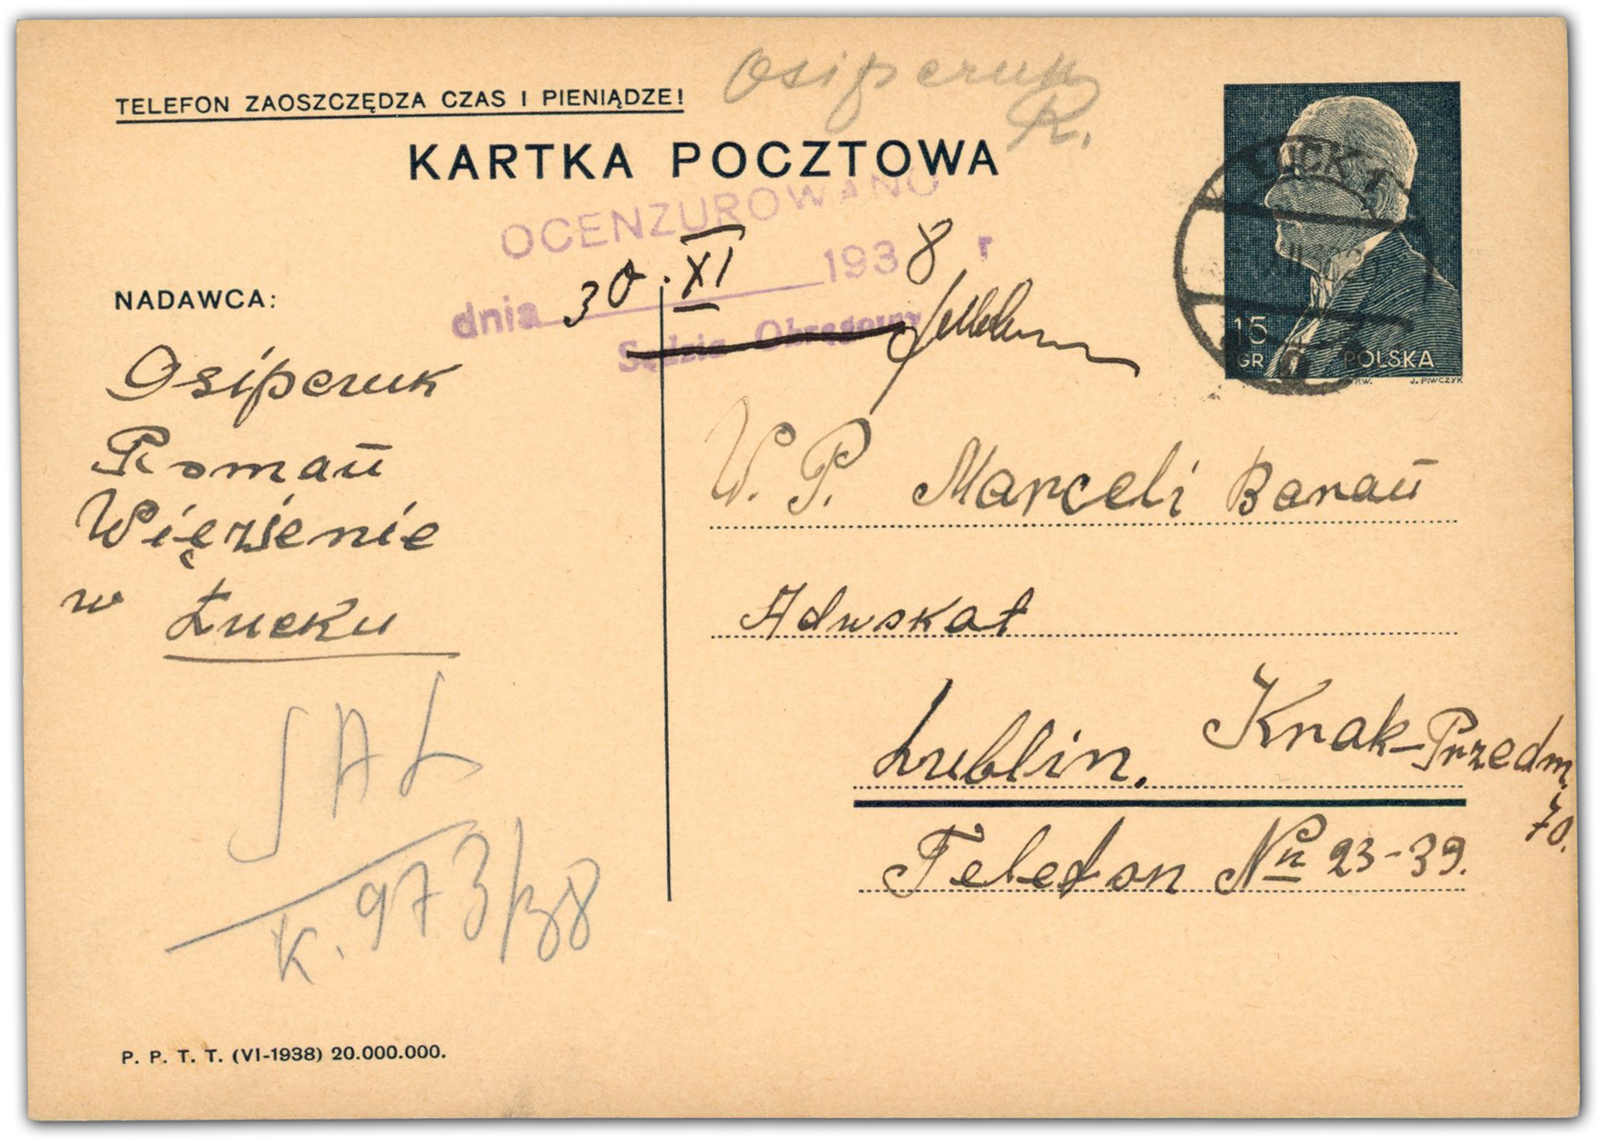 Osiperuk
R.
TELEFON ZAOSZCZĘDZA CZAS I PIENIĄDZE!
KARTKA POCZTOWA
OCENZUROWANO
dnia 30. XI 1938 r
Sędzia Okręgowy
15
GR
POLSKA
R.W. J. PIWCZYK
NADAWCA:
Osiperuk
Roman
Więzienie
w Łucku
W. P. Marceli Baran
Adwokat
Lublin, Krak-Przedm
70.
Telefon Nr 23-39.
K. 973/38
P. P. T. T. (VI-1938) 20.000.000.